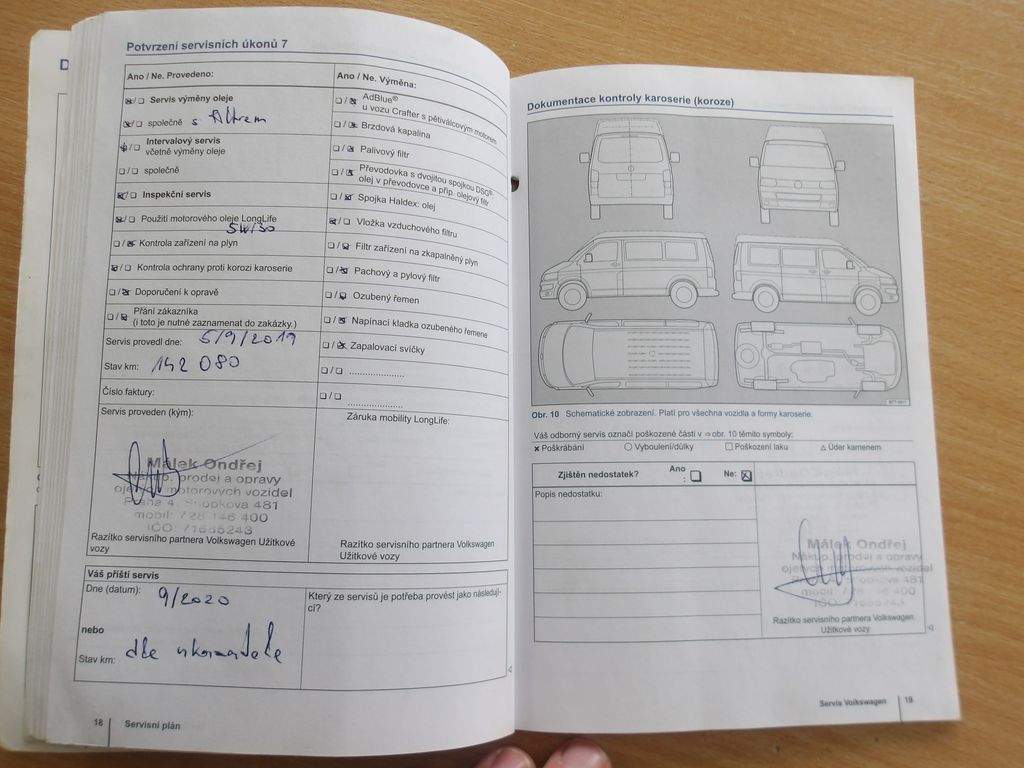 Potvrzení servisních úkonů 7
Ano / Ne. Provedeno:
Servis výměny oleje
společně s filtrem
Intervalový servis
včetně výměny oleje
společně
Inspekční servis
Použití motorového oleje LongLife
5W/30
Kontrola zařízení na plyn
Kontrola ochrany proti korozi karoserie
Doporučení k opravě
Přání zákazníka
(i toto je nutné zaznamenat do zakázky.)
Servis provedl dne: 5/9/2019
Stav km: 142 080
Číslo faktury:
Servis proveden (kým):
Málek Ondřej
Nákup, prodej a opravy
ojetých motorových vozidel
Praha 4, 481
mobil: 728 146 400
IČO: 71655243
Razítko servisního partnera Volkswagen Užitkové
vozy
Ano / Ne. Výměna:
AdBlue®
u vozu Crafter s pětiválcovým motorem
Brzdová kapalina
Palivový filtr
Převodovka s dvojitou spojkou DSG®:
olej v převodovce a příp. olejový filtr
Spojka Haldex: olej
Vložka vzduchového filtru
Filtr zařízení na zkapalněný plyn
Pachový a pylový filtr
Ozubený řemen
Napínací kladka ozubeného řemene
Zapalovací svíčky
Záruka mobility LongLife:
Razítko servisního partnera Volkswagen
Užitkové vozy
Váš příští servis
Dne (datum): 9/2020
nebo
Stav km: dle ukazatele
Který ze servisů je potřeba provést jako následují-
cí?
18 Servisní plán
Dokumentace kontroly karoserie (koroze)
Obr. 10 Schematické zobrazení. Platí pro všechna vozidla a formy karoserie.
Váš odborný servis označí poškozené části v ⇒ obr. 10 těmito symboly:
× Poškrábání ○ Vyboulení/důlky □ Poškození laku △ Úder kamenem
Zjištěn nedostatek? Ano: Ne:
Popis nedostatku:
Málek Ondřej
Nákup, prodej a opravy
ojetých motorových vozidel
481
mobil: 728 146 400
Razítko servisního partnera Volkswagen
Užitkové vozy
Servis Volkswagen 19